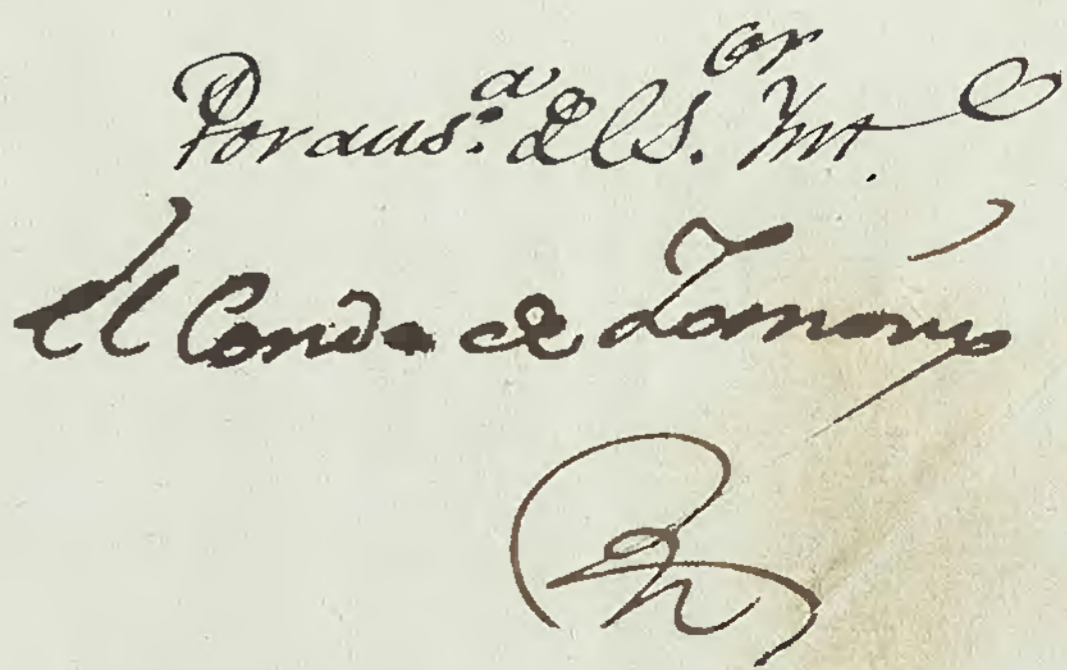 Por aus.ª del S.ᵒʳ Int.ᵉ
El Conde de